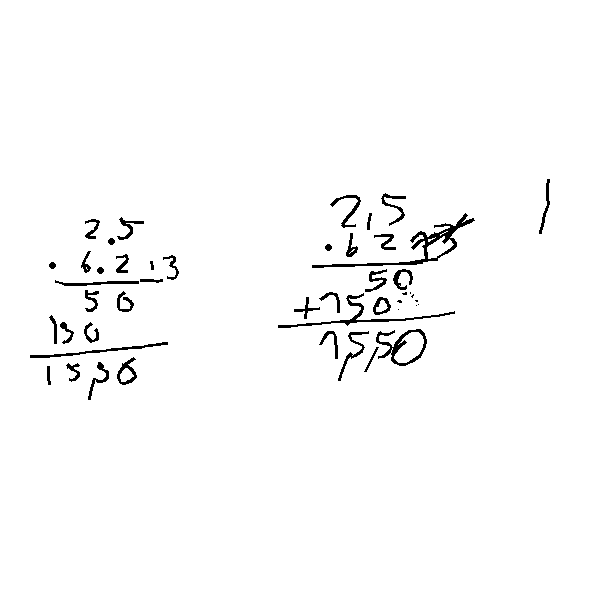 2.5
. 6.2.13
50
150
15,50
2,5
.62
50
+150
1,5,50